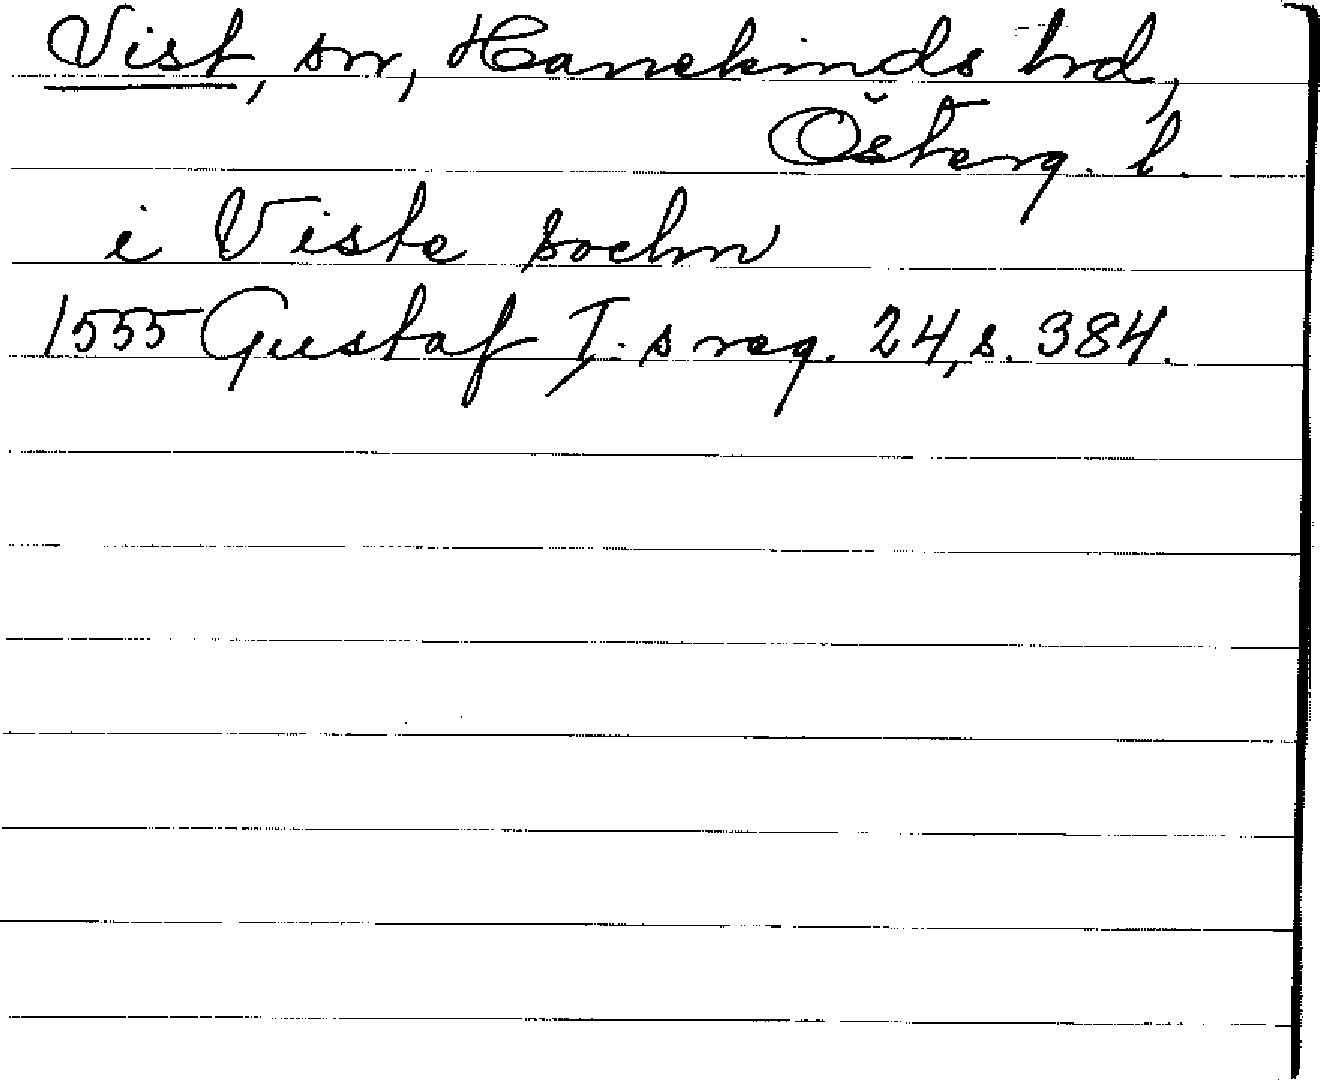 Vist, sn, Hanekinds hrd,
Österg. l.
i Viste sochn
1555 Gustaf I. s reg. 24, s. 384.